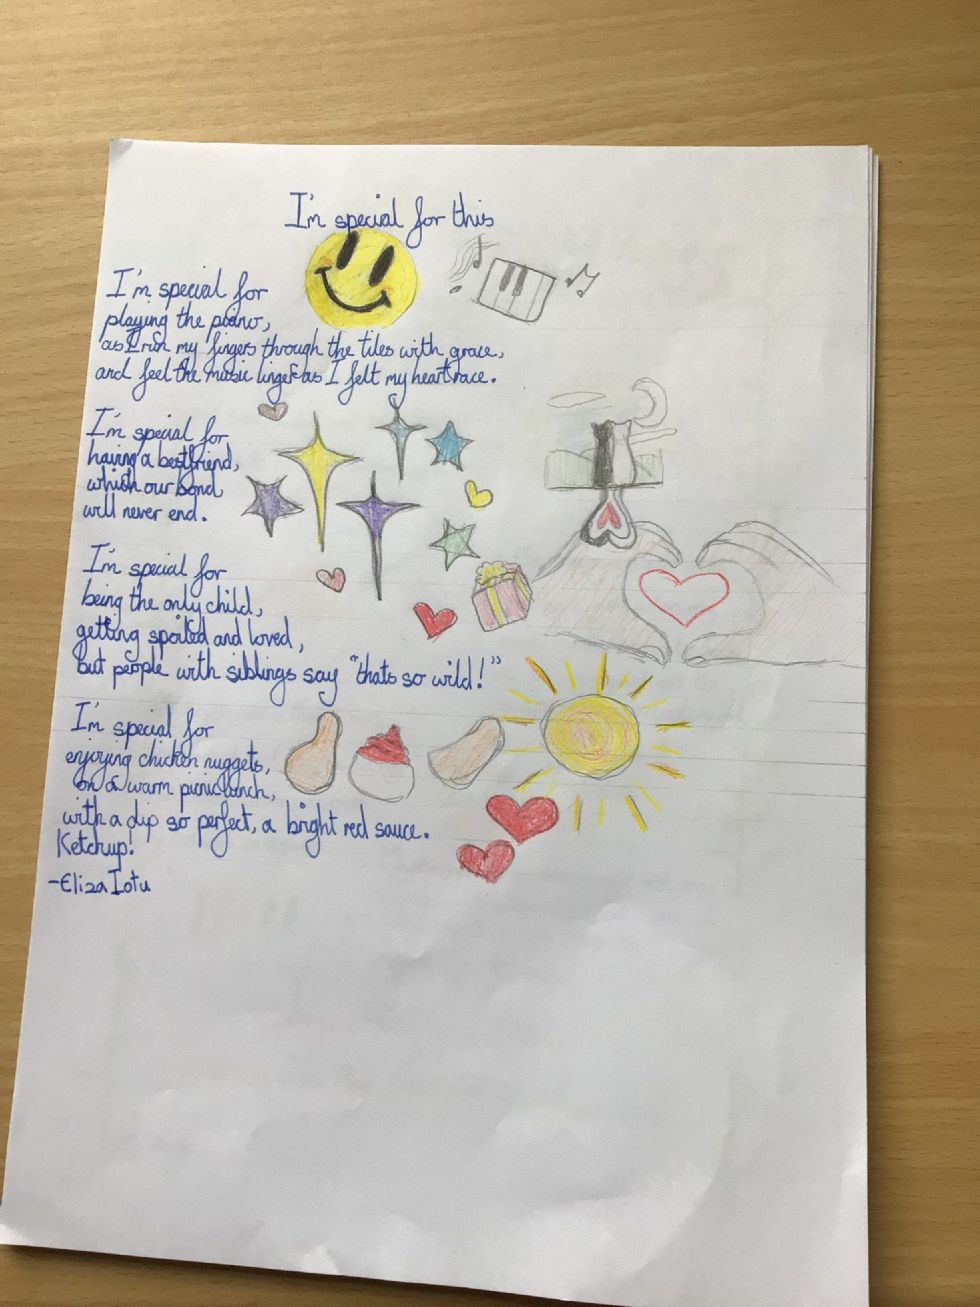 I'm special for this
I'm special for
playing the piano,
as I run my fingers through the tiles with grace,
and feel the music linger as I felt my heart race.
I'm special for
having a bestfriend,
which our bond
will never end.
I'm special for
being the only child,
getting spoiled and loved,
but people with siblings say "thats so wild!"
I'm special for
enjoying chicken nuggets,
on a warm picnic lunch,
with a dip so perfect, a bright red sauce.
Ketchup!
-Eliza Iotu